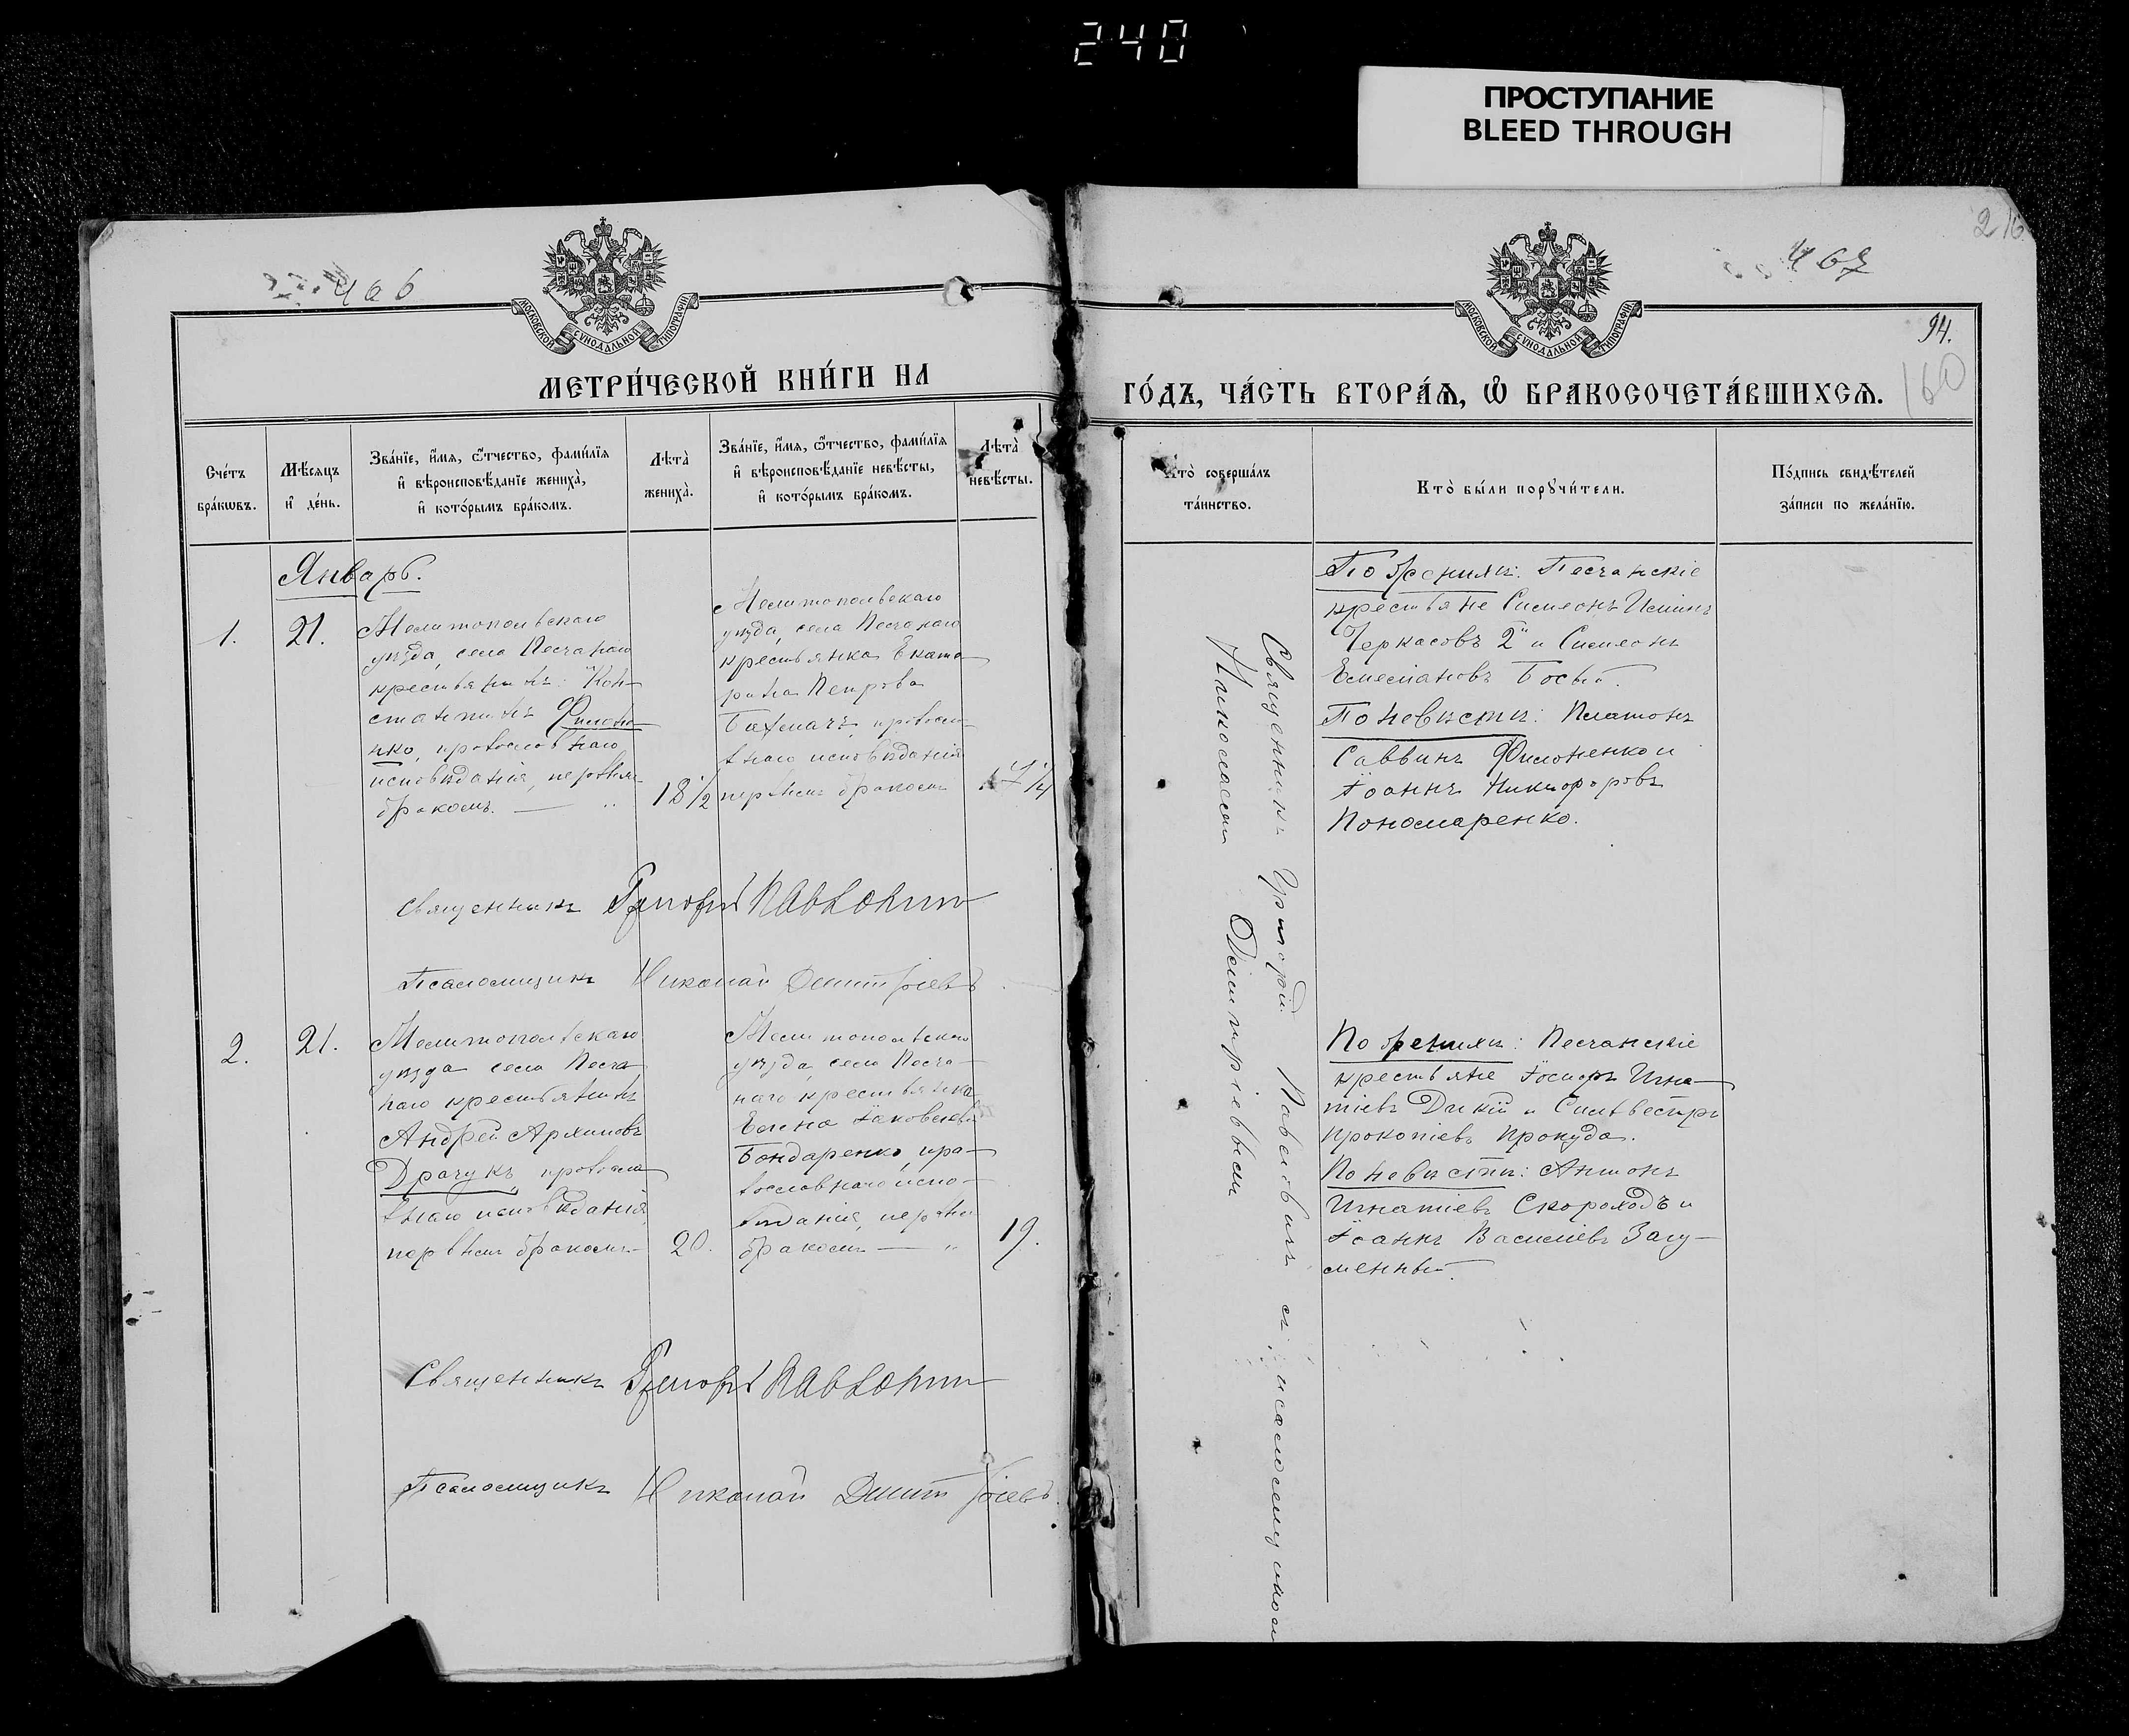 240
ПРОСТУПАНИЕ
BLEED THROUGH
466
МОСКОВСКОЙ СѴНОДАЛЬНОЙ ТИПОГРАФІИ
МЕТРИ́ЧЕСКОЙ КНИ́ГИ НА
Сче́тъ бра́кѡвъ.
Мѣ́сяцъ и де́нь.
Зва́нїе, и́мѧ, ѻ҆́тчество, фами́лїѧ
и҆ вѣроисповѣ́данїе жениха̀,
и҆ кото́рымъ бра́комъ.
Лѣта̀ жениха̀.
Зва́нїе, и́мѧ, ѻ҆́тчество, фами́лїѧ
и҆ вѣроисповѣ́данїе невѣ́сты,
и҆ кото́рымъ бра́комъ.
Лѣта̀ невѣ́сты.
Январь.
1.
21.
Мелитопольскаго
уѣзда, села Песчанаго
крестьянинъ Кон-
стантинъ Филоне-
нко, православнаго
исповѣданія, первымъ
бракомъ. — "
18 1/2
Мелитопольскаго
уѣзда, села Песчанаго
крестьянка Екате-
рина Петрова
православ-
наго исповѣданія
первымъ бракомъ
Священникъ Григорій
Псаломщикъ Николай Димитріевъ
2.
21.
Мелитопольскаго
уѣзда села Песча-
наго крестьянинъ
Андрей Архиповъ
Драчукъ, православ-
наго исповѣданія
первымъ бракомъ —
20.
Мелитопольскаго
уѣзда, села Песча-
наго крестьянка
Елена Іаковлева
Бондаренко, пра-
вославнаго испо-
вѣданія, первымъ
бракомъ — "
19.
Священникъ Григорій
Псаломщикъ Николай Димитріевъ
216
467
МОСКОВСКОЙ СѴНОДАЛЬНОЙ ТИПОГРАФІИ
94.
160
ГО́ДЪ, ЧА́СТЬ ВТОРА́Ѧ, Ѽ БРАКОСОЧЕТА́ВШИХСѦ.
Кто̀ соверша́лъ
та́инство.
Кто̀ бы́ли порꙋчи́тели.
По́дпись свидѣ́телей
за́писи по жела́нїю.
Священникъ Григорій съ псаломщикомъ
Николаемъ Димитріевымъ
По женихѣ: Песчанскіе
крестьяне Симеонъ
Черкасовъ 2й и Симеонъ
Босый.
По невѣстѣ: Платонъ
Саввинъ Филоненко и
Іоаннъ Никифоровъ
Пономаренко.
По женихѣ: Песчанскіе
крестьяне Іосифъ Игна-
тіевъ Дикій и Сильвестръ
Прокопіевъ Прокуда.
По невѣстѣ: Антонъ
Игнатіевъ Скороходъ и
Іоаннъ Василіевъ